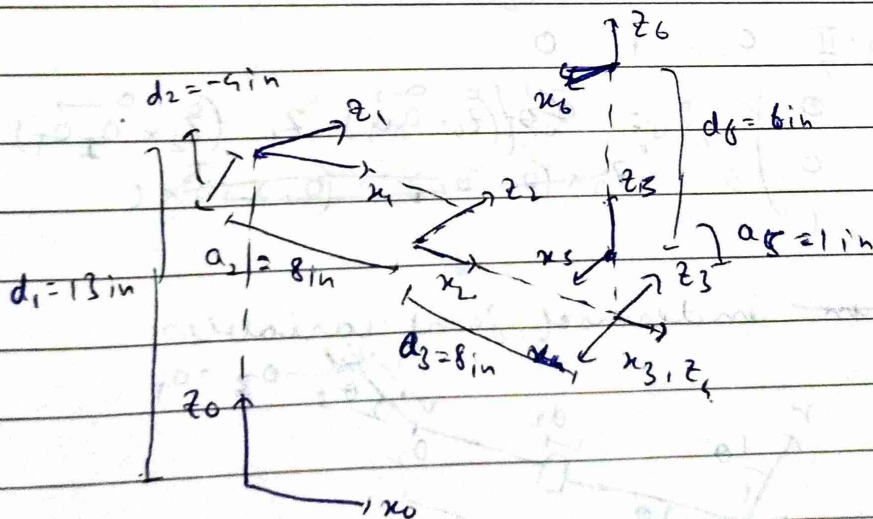 z6
d2 = -4in
x6
z1
d6 = 6in
x1
z2
z5
x5
a5 = 1 in
a2 = 8in
z3
d1 = 13 in
x2
a3 = 8in
x4
x3, z4
z0
x0